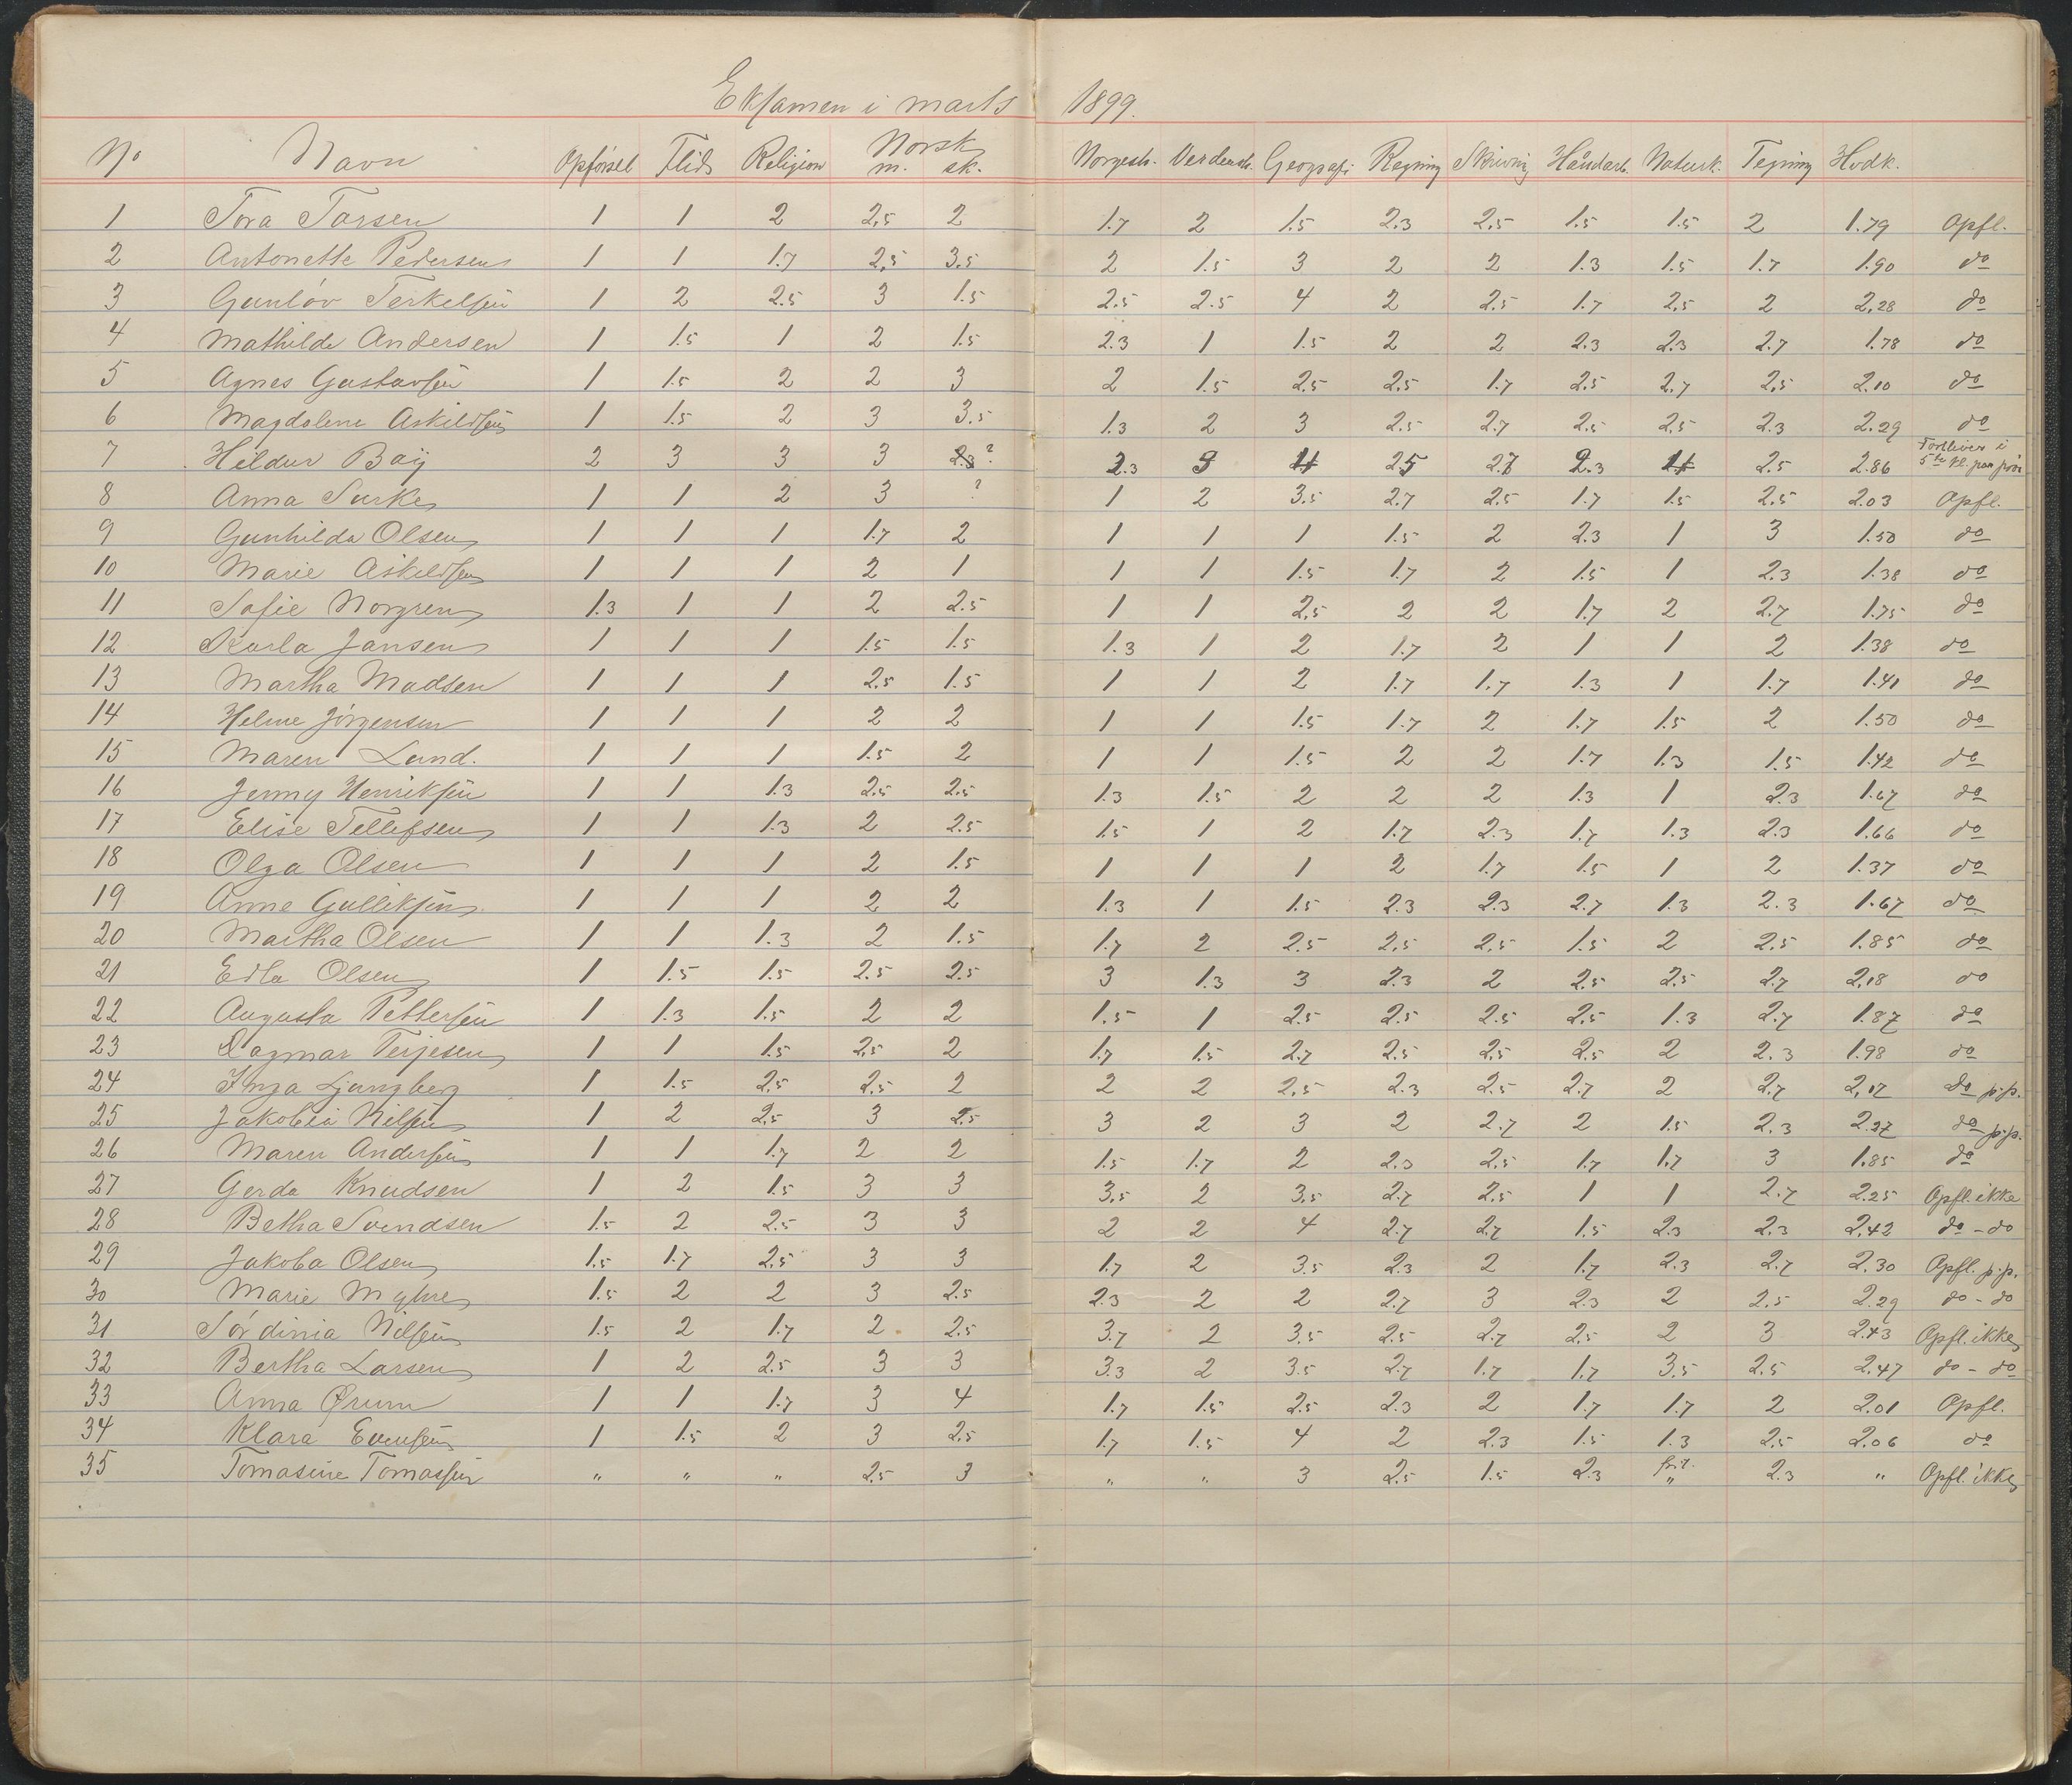 Eksamen i marts 1899.
No Navn Opförsel Flid Religion Norsk m. sk. Norgesh. Verdensh. Geografi Regning Skrivning Håndarb. Naturk. Tegning Hvdk.
1 Tora Tarsen 1 1 2 2,5 2 1.7 2 1.5 2.3 2,5 1.5 1.5 2 1.79 Opfl.
2 Antonette Pedersen 1 1 1.7 2,5 3,5 2 1.5 3 2 2 1.3 1.5 1.7 1.90 do
3 Gunløv Terkelsen 1 2 2.5 3 1.5 2.5 2.5 4 2 2.5 1.7 2,5 2 2,28 do
4 Mathilde Andersen 1 1.5 1 2 1.5 2.3 1 1.5 2 2 2.3 2.3 2.7 1.78 do
5 Agnes Gustavsen 1 1.5 2 2 3 2 1.5 2.5 2.5 1.7 2.5 2.7 2,5 2.10 do
6 Magdalene Askildsen 1 1.5 2 3 3.5 1.3 2 3 2.5 2.7 2.5 2.5 2.3 2.29 do
7 Hildur Baij 2 3 3 3 2.3 ? 2.3 3 4 25 2.7 2.3 4 2.5 2.86 Forbliver i 5te kl. paa prøve
8 Anna Surke 1 1 2 3 ? 1 2 3,5 2.7 2.5 1.7 1.5 2,5 2.03 Opfl.
9 Gunhilda Olsen 1 1 1 1.7 2 1 1 1 1.5 2 2.3 1 3 1.50 do
10 Marie Askildsen 1 1 1 2 1 1 1 1.5 1.7 2 1.5 1 2.3 1.38 do
11 Sofie Norgren 1.3 1 1 2 2.5 1 1 2,5 2 2 1.7 2 2.7 1.75 do
12 Karla Jansen 1 1 1 1.5 1.5 1.3 1 2 1.7 2 1 1 2 1.38 do
13 Martha Madsen 1 1 1 2,5 1.5 1 1 2 1.7 1.7 1.3 1 1.7 1.41 do
14 Helene Jörgensen 1 1 1 2 2 1 1 1.5 1.7 2 1.7 1.5 2 1.50 do
15 Maren Lund. 1 1 1 1.5 2 1 1 1.5 2 2 1.7 1.3 1.5 1.42 do
16 Jenny Henriksen 1 1 1.3 2.5 2.5 1.3 1.5 2 2 2 1.3 1 2.3 1.67 do
17 Elise Tellefsen 1 1 1.3 2 2.5 1.5 1 2 1.7 2.3 1.7 1.3 2.3 1.66 do
18 Olga Olsen 1 1 1 2 1.5 1 1 1 2 1.7 1.5 1 2 1.37 do
19 Anne Gulliksen 1 1 1 2 2 1.3 1 1.5 2.3 2.3 2.7 1.3 2.3 1.67 do
20 Martha Olsen 1 1 1.3 2 1.5 1.7 2 2.5 2,5 2,5 1.5 2 2.5 1.85 do
21 Edla Olsen 1 1.5 1.5 2.5 2.5 3 1.3 3 2.3 2 2,5 2.5 2.7 2,18 do
22 Augusta Pettersen 1 1.3 1.5 2 2 1.5 1 2.5 2.5 2.5 2,5 1.3 2.7 1.87 do
23 Dagmar Terjesen 1 1 1.5 2,5 2 1.7 1.5 2.7 2.5 2.5 2.5 2 2.3 1.98 do
24 Inga Ljungberg 1 1.5 2,5 2,5 2 2 2 2,5 2.3 2.5 2.7 2 2.7 2,17 do p.p.
25 Jakobia Nilsen 1 2 2,5 3 2,5 3 2 3 2 2.7 2 1.5 2.3 2.27 do p.p.
26 Maren Andersen 1 1 1.7 2 2 1.5 1.7 2 2.3 2.5 1.7 1.7 3 1.85 do
27 Gerda Knudsen 1 2 1.5 3 3 3,5 2 3,5 2.7 2,5 1 1 2.7 2.25 Opfl. ikke
28 Betha Svendsen 1.5 2 2.5 3 3 2 2 4 2.7 2.7 1.5 2.3 2.3 2,42 do - do
29 Jakoba Olsen 1.5 1.7 2,5 3 3 1.7 2 3.5 2.3 2 1.7 2.3 2.7 2.30 Opfl. p.p.
30 Marie Myhre 1.5 2 2 3 2.5 2.3 2 2 2.7 3 2.3 2 2,5 2.29 do - do
31 Sørdinia Nilsen 1.5 2 1.7 2 2.5 3.7 2 3.5 2.5 2.7 2.5 2 3 2.43 Opfl. ikke
32 Bertha Larsen 1 2 2.5 3 3 3.3 2 3.5 2.7 1.7 1.7 3.5 2.5 2.47 do - do
33 Anna Ørum 1 1 1.7 3 4 1.7 1.5 2.5 2.3 2 1.7 1.7 2 2.01 Opfl.
34 Klara Evensen 1 1.5 2 3 2.5 1.7 1.5 4 2 2.3 1.5 1.3 2.5 2.06 do
35 Tomasine Tomassen " " " 2.5 3 " " 3 2.5 1.5 2.3 frit. " 2.3 " Opfl. ikke